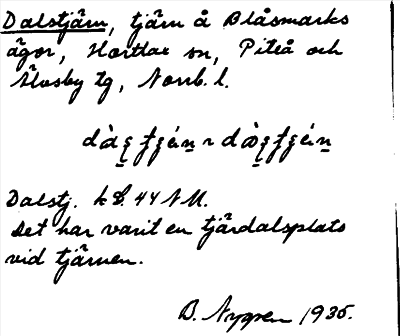 Dalstjärn, tjärn å Blåsmarks
ägor, Hortlax sn, Piteå och
Älvsby tg, Norrb. l.
Dalstj. k 8. 44 NM.
Det har varit en tjärdalsplats
vid tjärnen.
B. Nygren 1935.